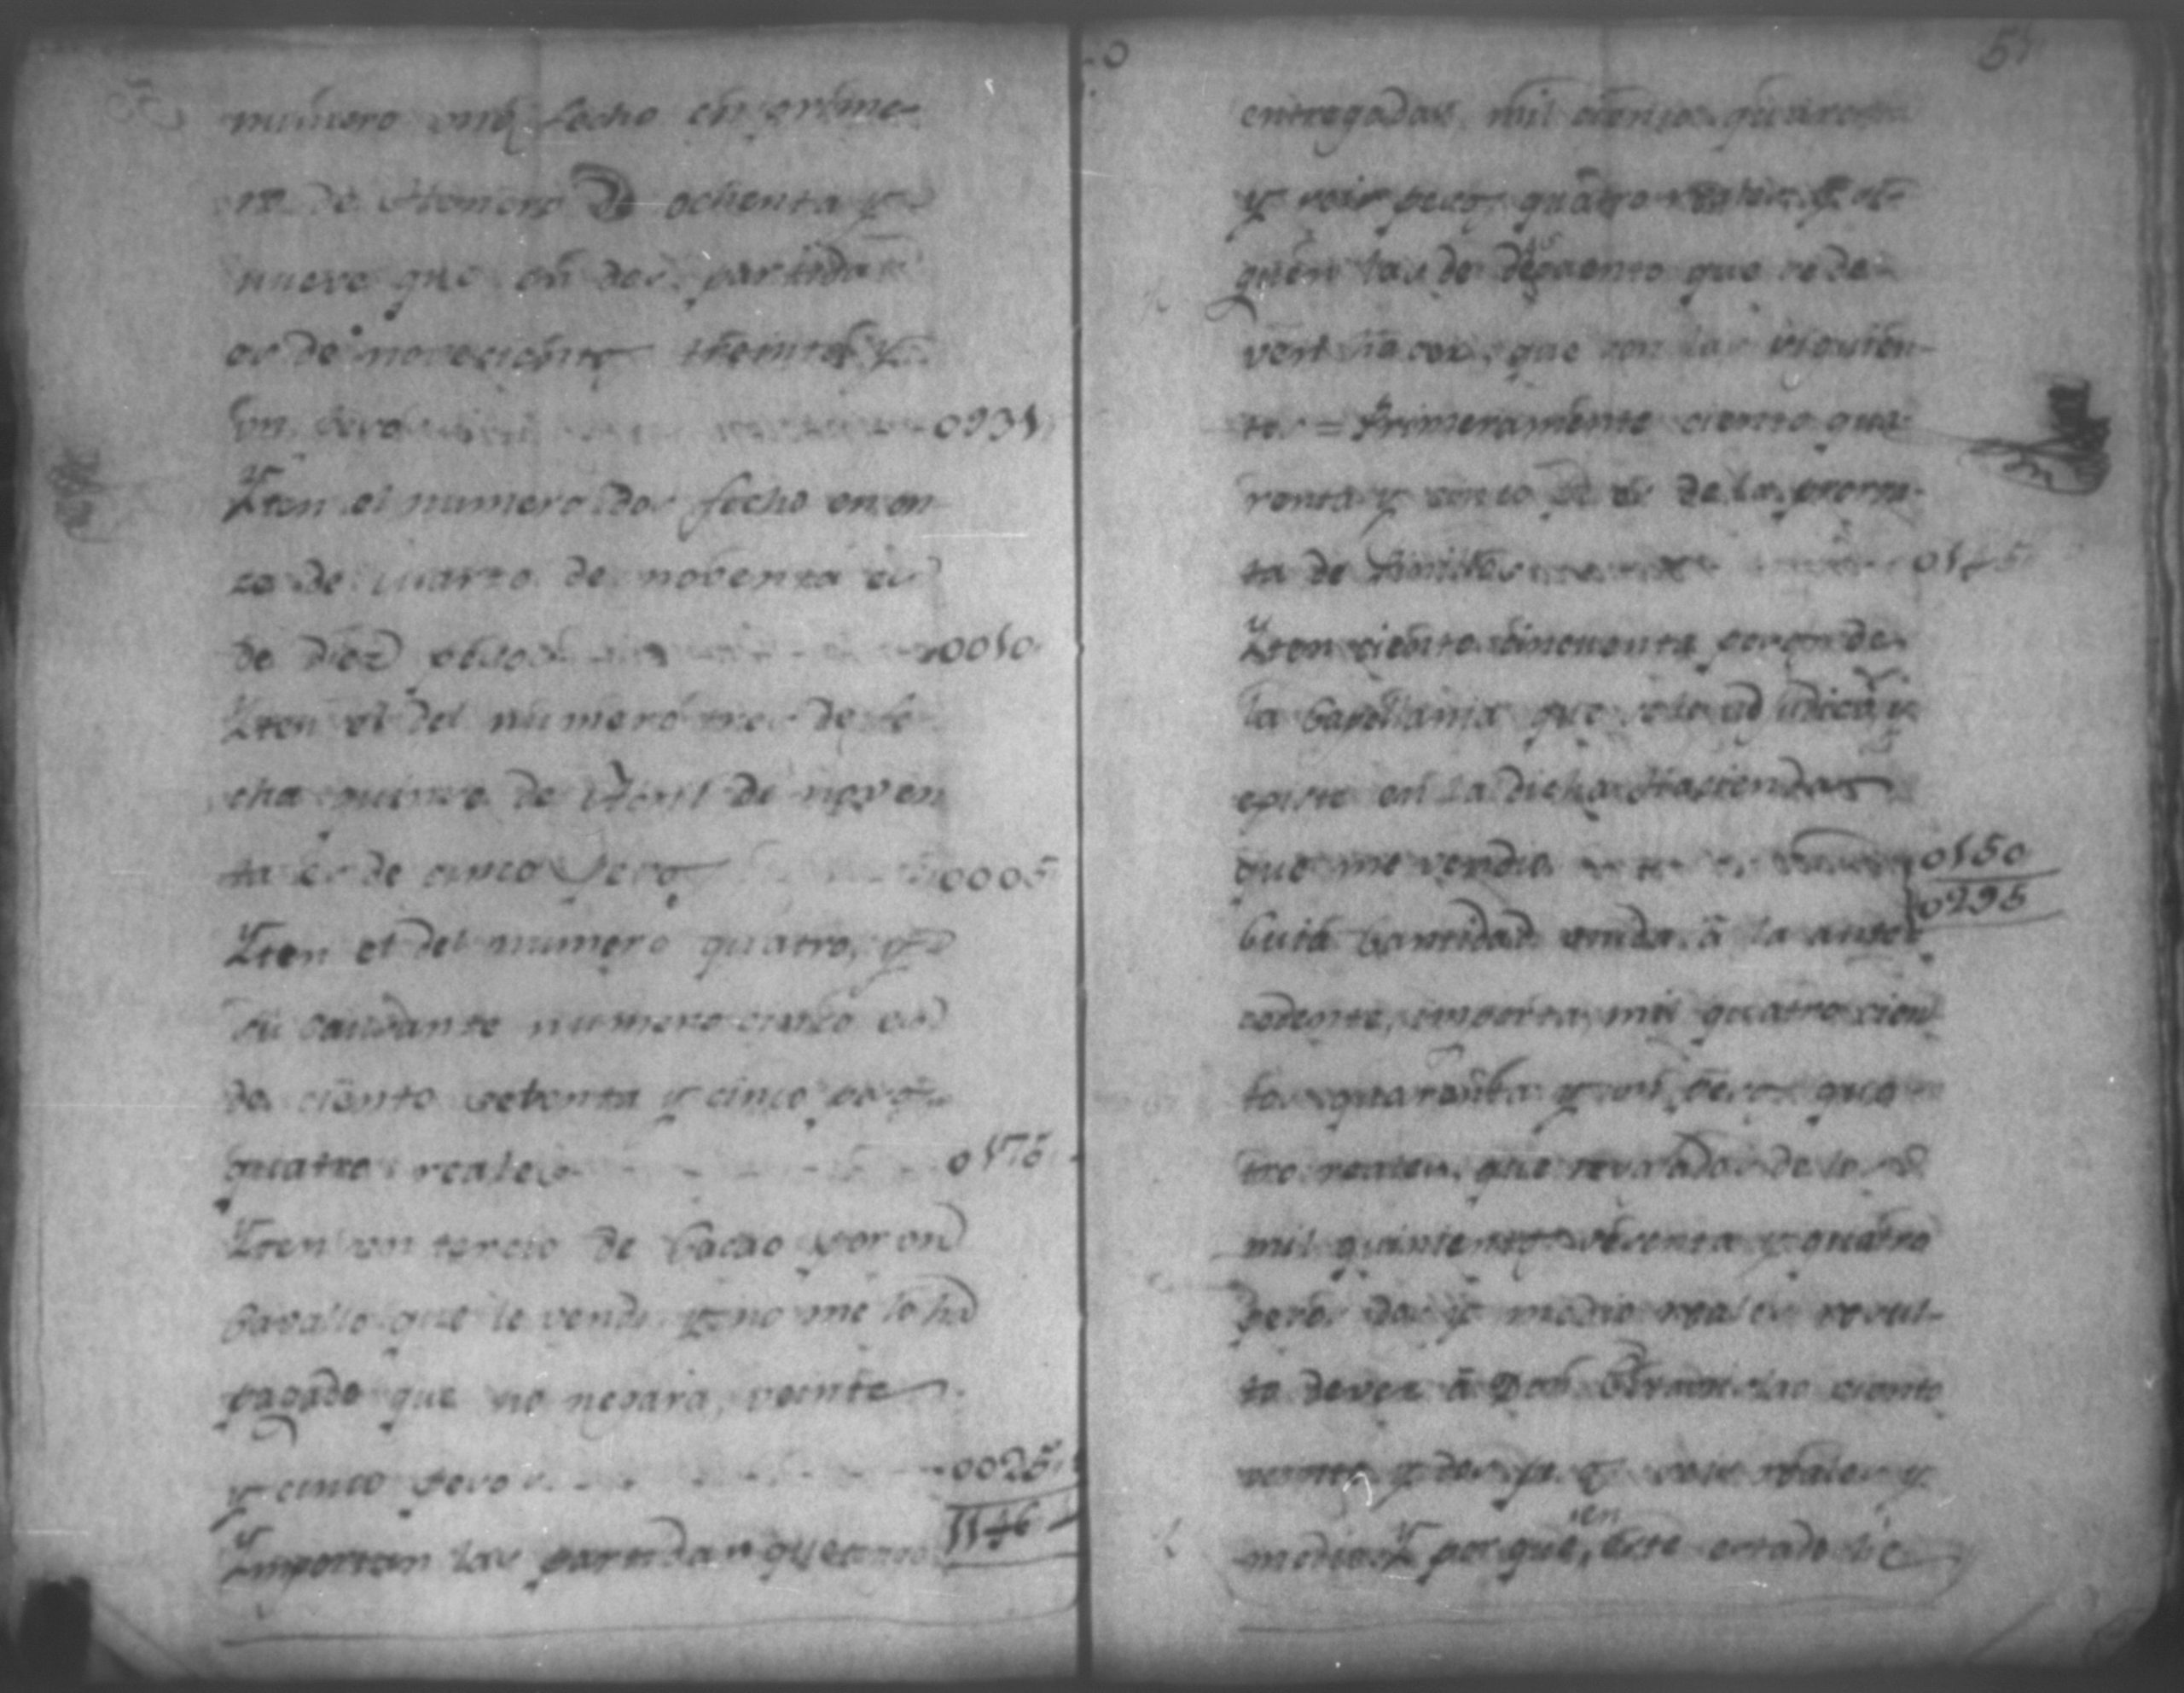 numero uno fecho en prime-
ro de Henero de ochenta y
nueve que en dos partidas
es de novecientos treinta y
un pesos 0931
Yten el numero dos fecho en on
ze de Marzo de noventa es
de diez pesos 0010
Yten el del numero tres de fe
cha quinze de Abril de noven
ta es de cinco pesos 0005
Yten el del numero quatro, y
su caudante numero cinco es
de ciento setenta y cinco pesos
quatro reales 0175
Yten un tercio de Cacao por un
Cavallo que le vendi y no me lo ha
pagado que no negara, veinte
y cinco pesos 0025
Ymportan las partidas que tengo 1146
51
entregadas mil ciento quarenta
y seis pesos quatro reales y se
quen las de descuento que se de
ven hacer, que son las siguien-
tes = Primeramente ciento qua-
renta y cinco de la prorra-
ta de 0145
Yten ciento cincuenta pesos de
la Capellania que se le adjudicó y
existe en la dicha Haciendas
que me vendio 0150
0295
Cuia Cantidad unida á la ante
cedente, importa, mil quatrocien
tos quarenta y un pesos qua
tro reales, que revajados de los
mil quinientos sesenta y quatro
pesos dos y medio reales resul-
ta dever á Don Estanislao ciento
veinte y dos pesos seis reales y
medio Y por que, en este estado he